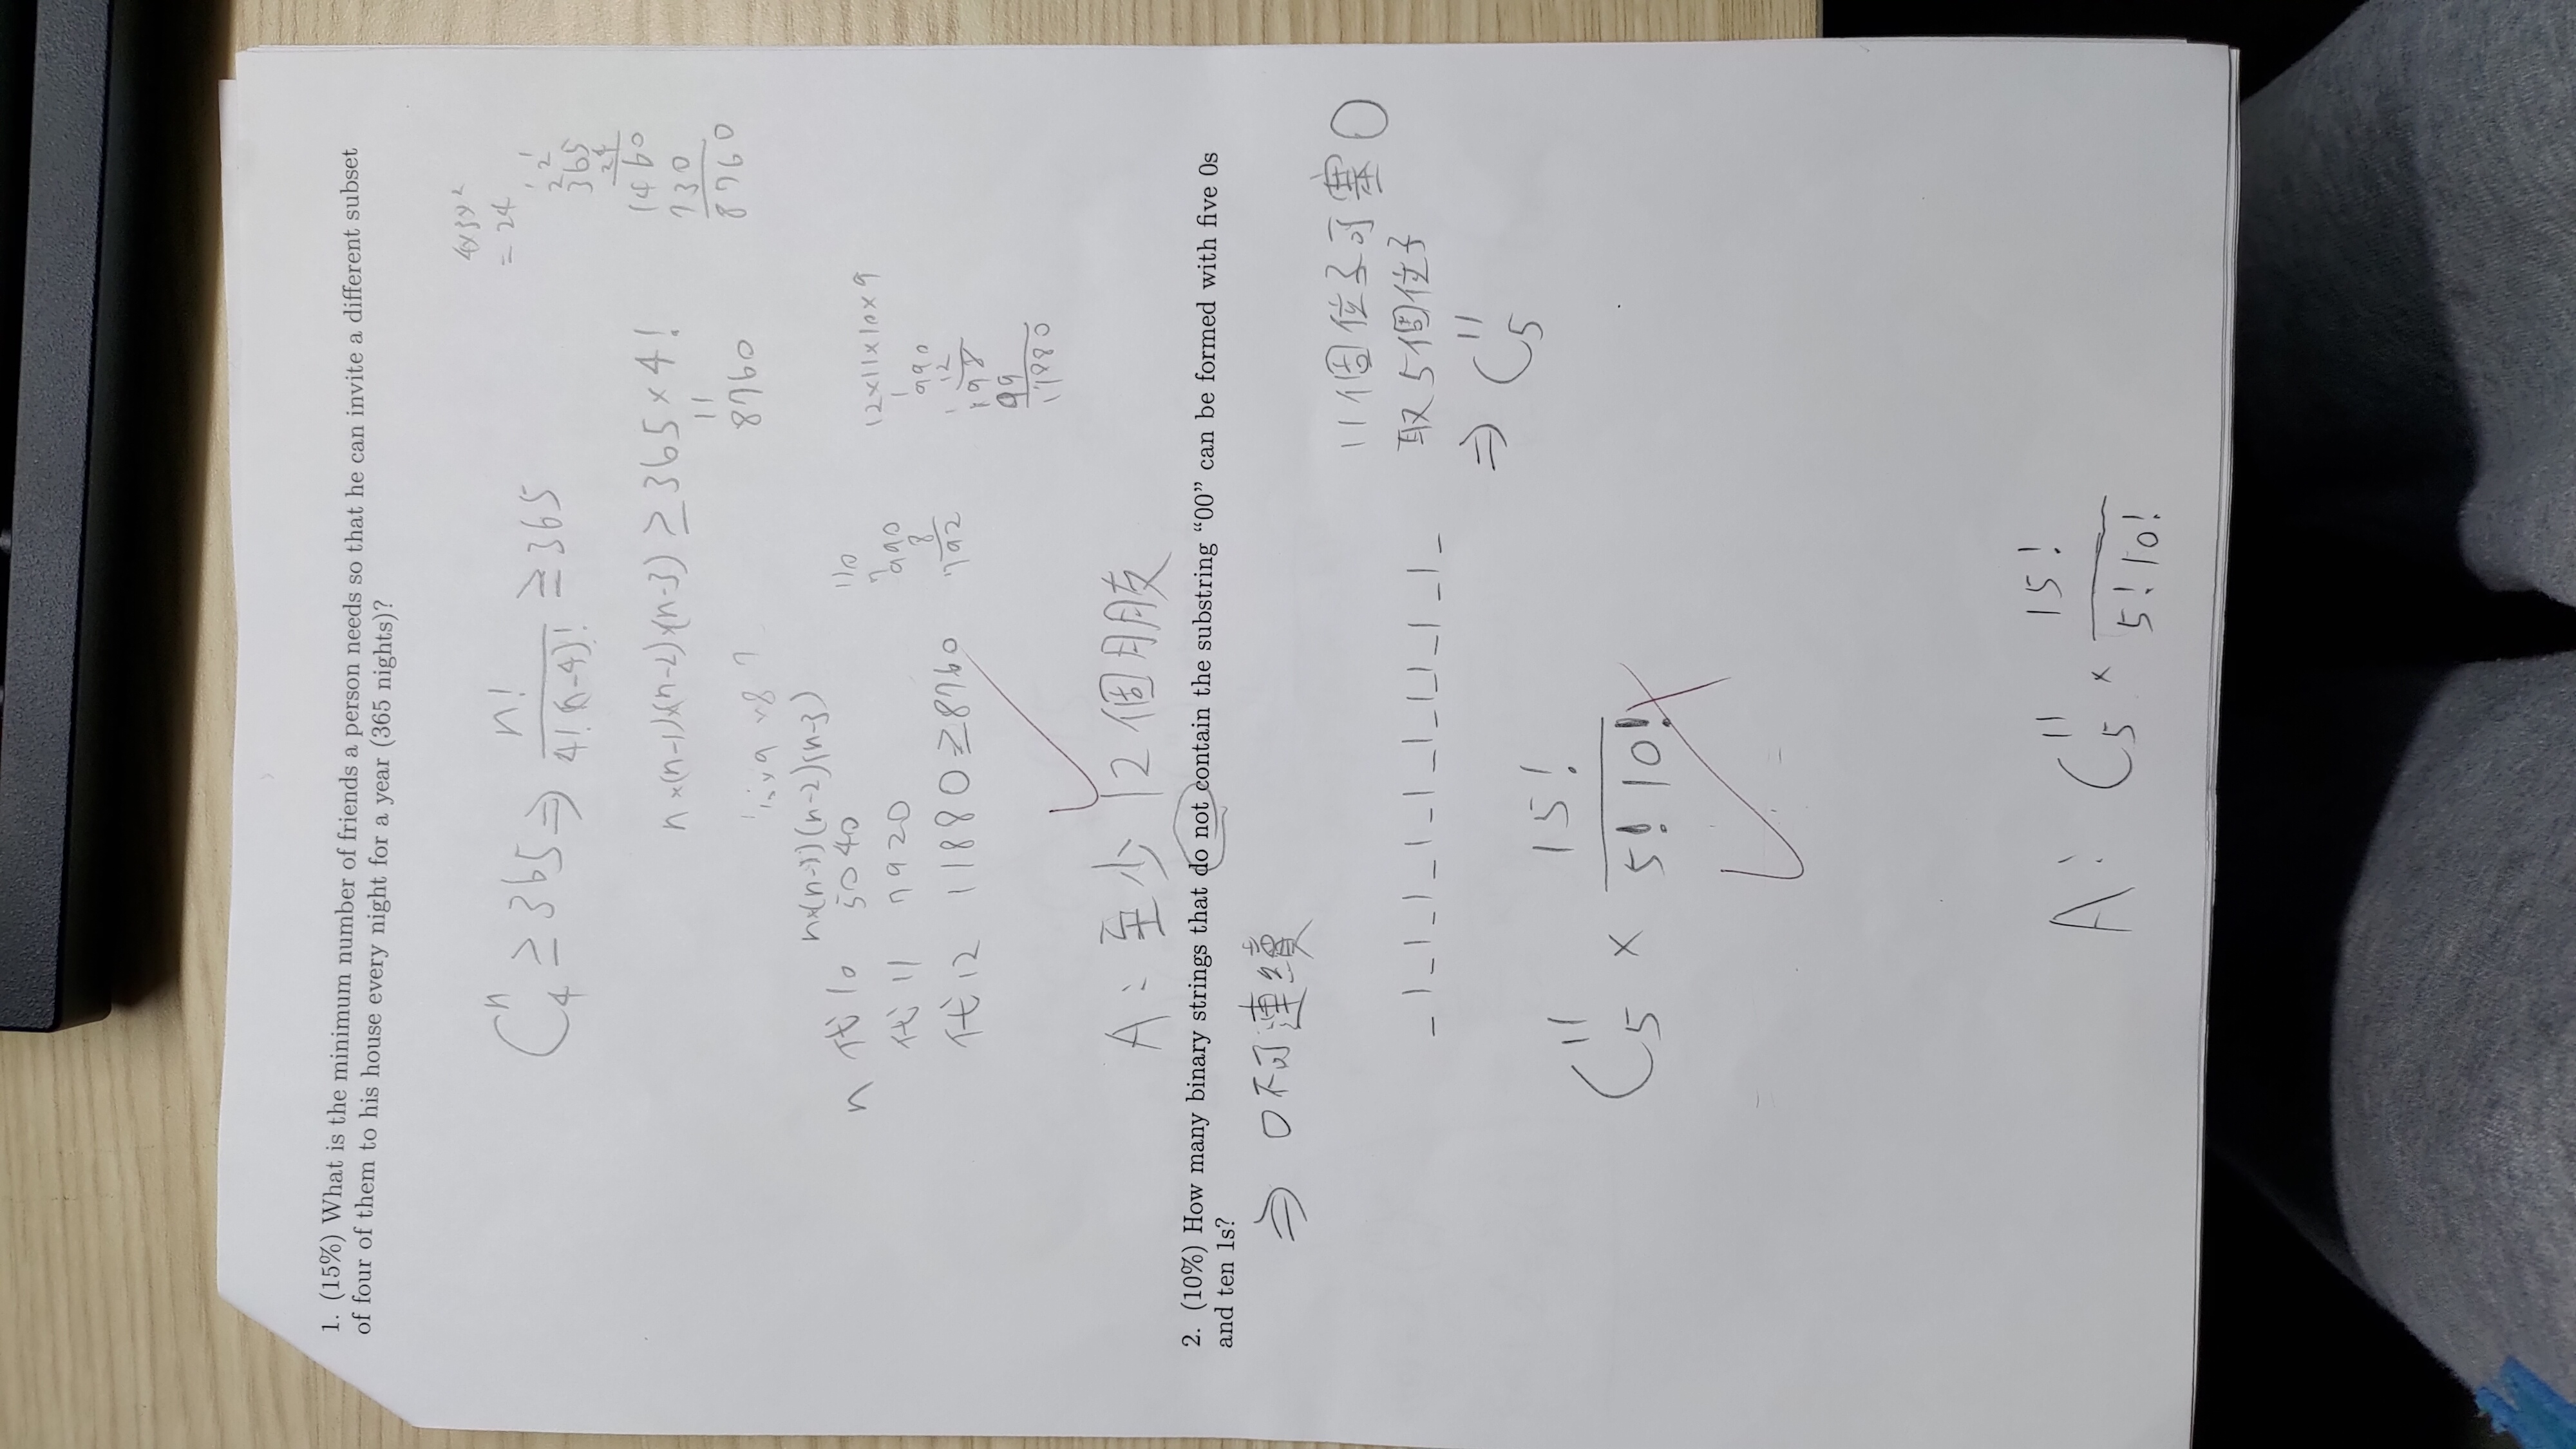 1. (15%) What is the minimum number of friends a person needs so that he can invite a different subset
of four of them to his house every night for a year (365 nights)?
4×3×2
= 24
C^n_4 ≥ 365 ⇒ n! / 4!(n-4)! ≥ 365
365
24
1460
730
8760
n×(n-1)×(n-2)×(n-3) ≥ 365×4!
11
8760
n×(n-1)(n-2)(n-3)
n 代10 5040
代11 7920
代12 11880≥8760
110
990
8
792
12×11×10×9
990
12
198
99
11880
A: 至少12個朋友
2. (10%) How many binary strings that do not contain the substring “00” can be formed with five 0s
and ten 1s?
⇒ 0不可連續
_1_1_1_1_1_1_1_1_1_1_
11個位子可塞0
取5個位子
⇒ C^11_5
C^11_5 × 15! / 5! 10!
A: C^11_5 × 15! / 5!10!